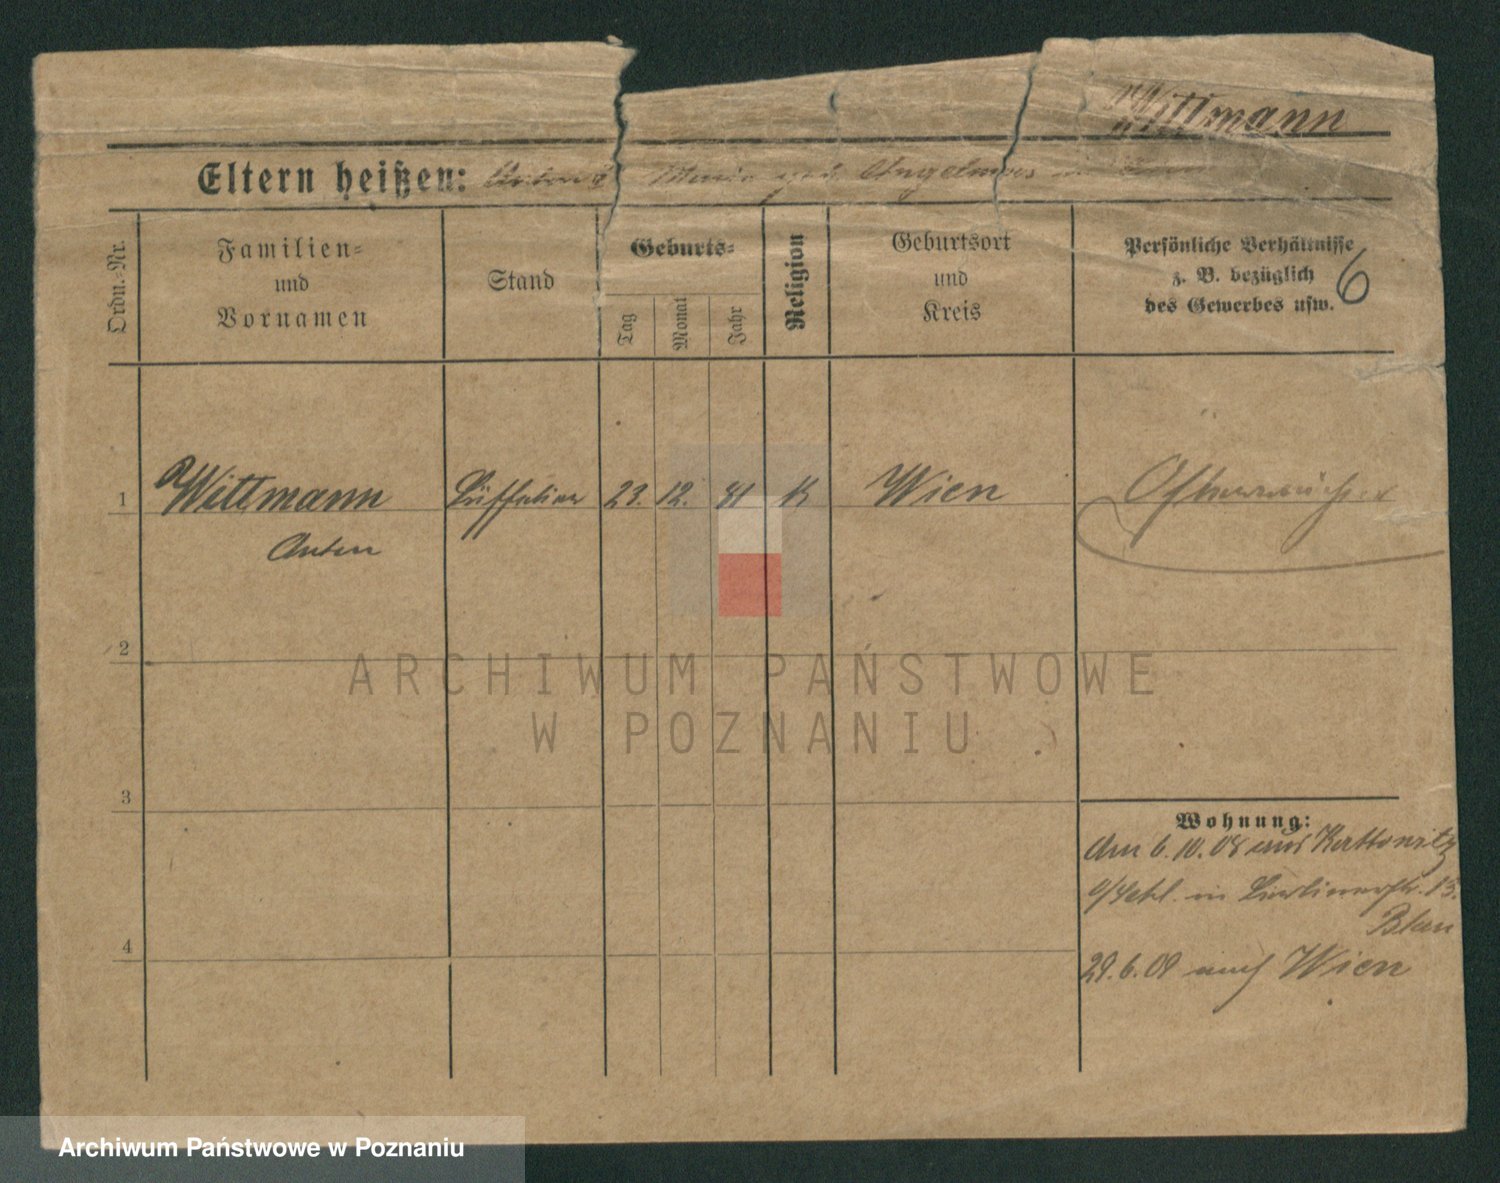 Wittmann
Eltern heißen: Maria geb.
Ordn.-Nr.
Familien-
und
Vornamen
Stand
Geburts-
Tag
Monat
Jahr
Religion
Geburtsort
und
Kreis
Persönliche Verhältnisse
z. B. bezüglich
des Gewerbes usw.
6
1 Wittmann 23. 12. 81 K Wien
Anton
2
ARCHIWUM PAŃSTWOWE
W POZNANIU
3
Wohnung:
Am 6.10.08 aus Kattowitz
in Berlinerstr. 13.
4
29.6.09 nach Wien
Archiwum Państwowe w Poznaniu